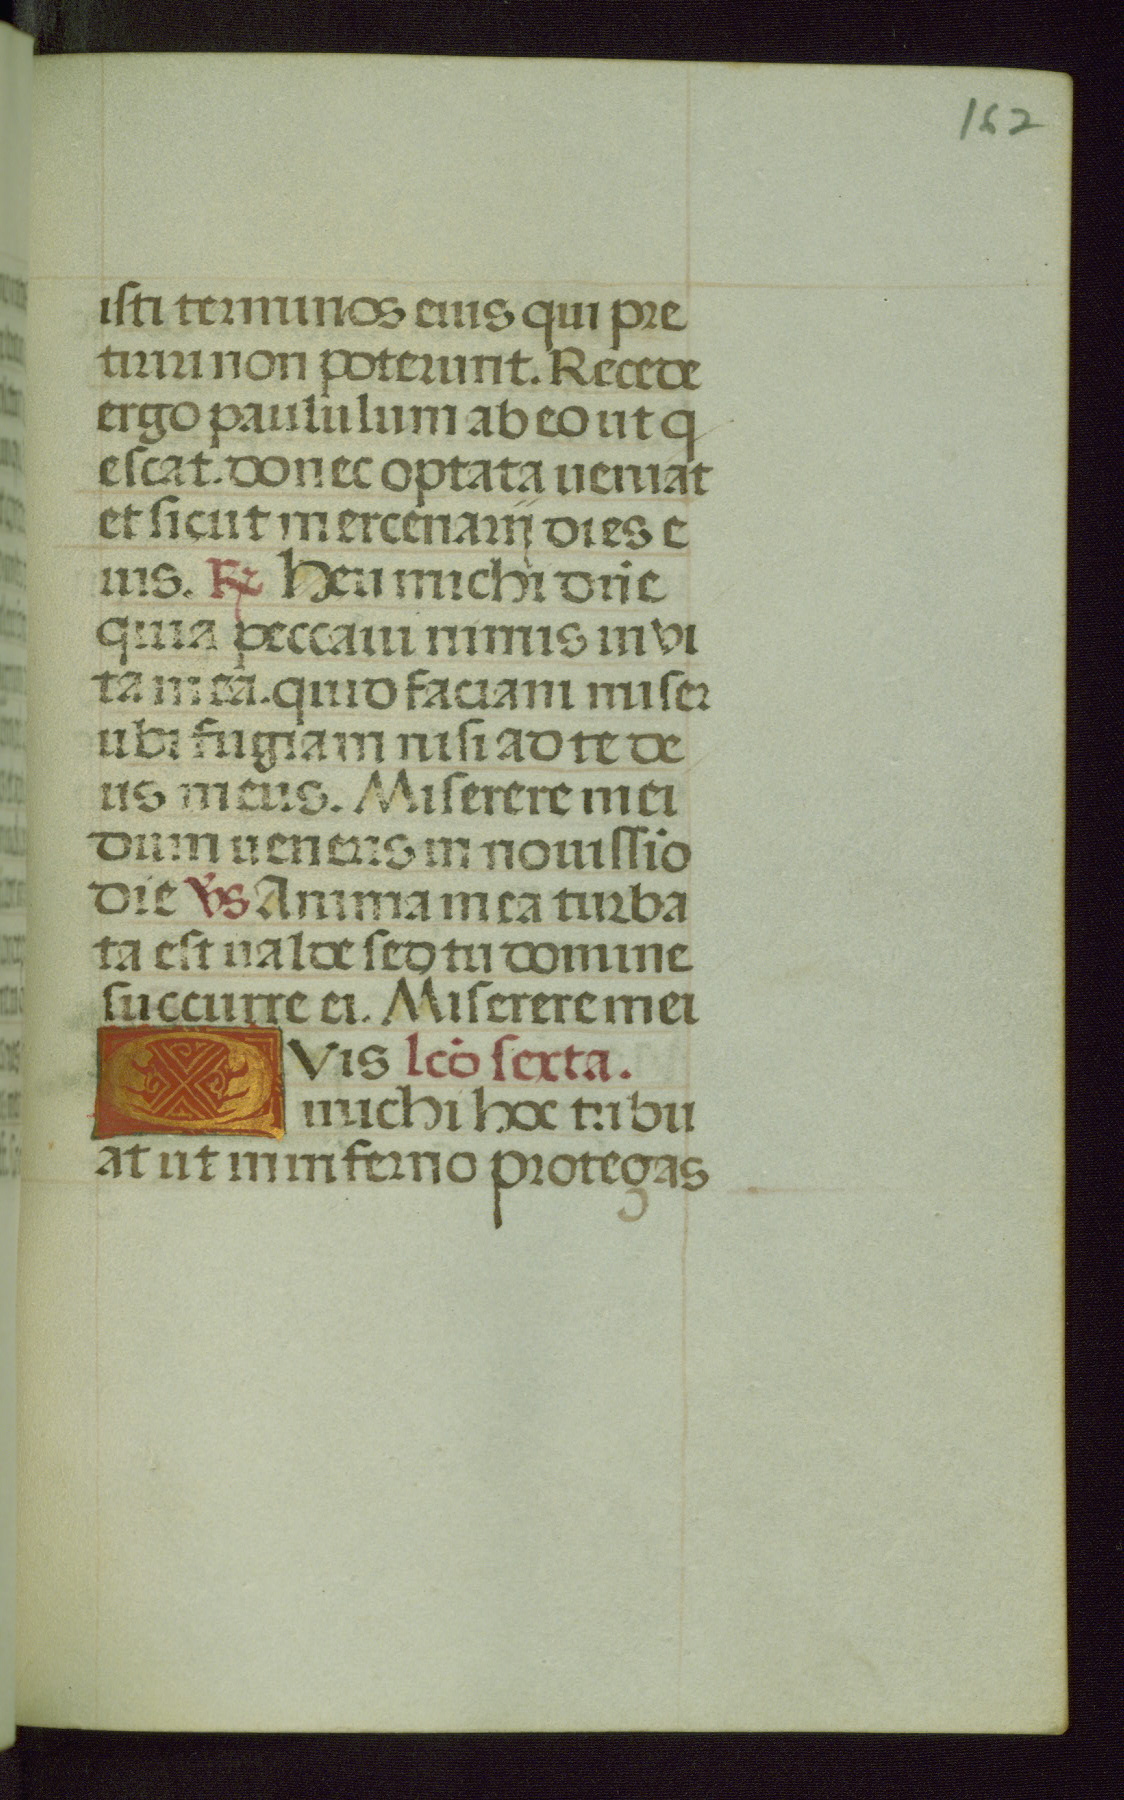 162
isti terminos eius qui pre
tiriri non poterunt. Recede
ergo paululum ab eo ut q
escat. donec optata ueniat
et sicut mercenarij dies e
ius. R heu michi dñe
quia peccaui nimis in vi
ta mea. quid faciam miser
ubi fugiam nisi ad te de
us meus. Miserere mei
dum ueneris in nouissio
die Vs Anima mea turba
ta est ualde sed tu domine
succurre ei. Miserere mei
QVis lcõ sexta.
michi hoc tribu
at ut in inferno protegas